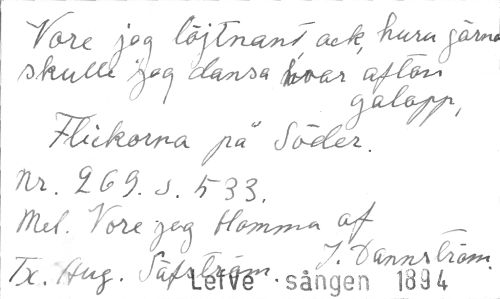 Vore jag löjtnant, ack, huru gärna
skulle jag dansa hvar afton
galopp,
Flickorna på Söder.
Nr. 269. s. 533.
Mel. Vore jag Homma af
I. Dannström.
Tx. Aug. Säfström.
Lefve sången 1894